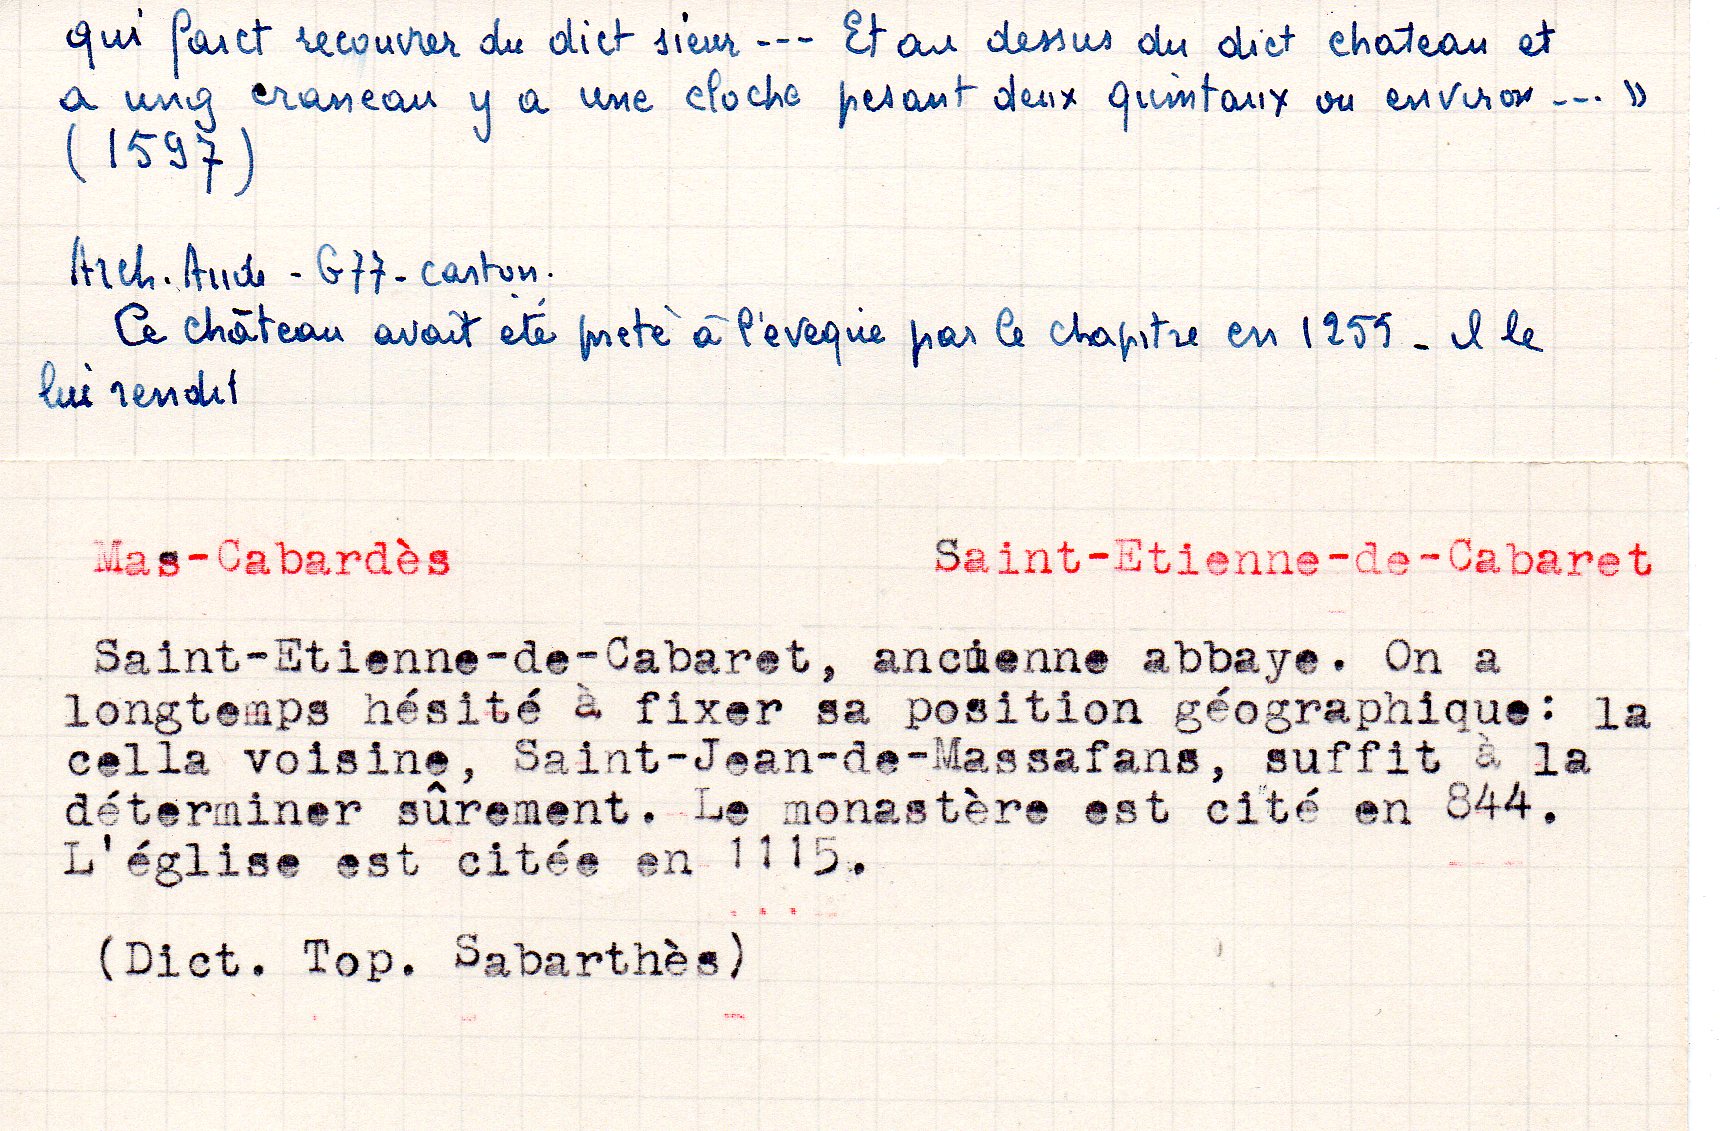 qui faict recouvrer du dict sieur --- Et au dessus du dict chateau et
a ung craneau y a une cloche pesant deux quintaux ou environ --- »
(1597)
Arch. Aude - G77 - carton.
Ce château avait eté preté à l'eveque par le chapitre en 1259 - il le
lui rendit
Mas-Cabardès Saint-Etienne-de-Cabaret
Saint-Etienne-de-Cabaret, ancienne abbaye. On a
longtemps hésité à fixer sa position géographique: la
cella voisine, Saint-Jean-de-Massafans, suffit à la
déterminer sûrement. Le monastère est cité en 844.
L'église est citée en 1115.
(Dict. Top. Sabarthès)